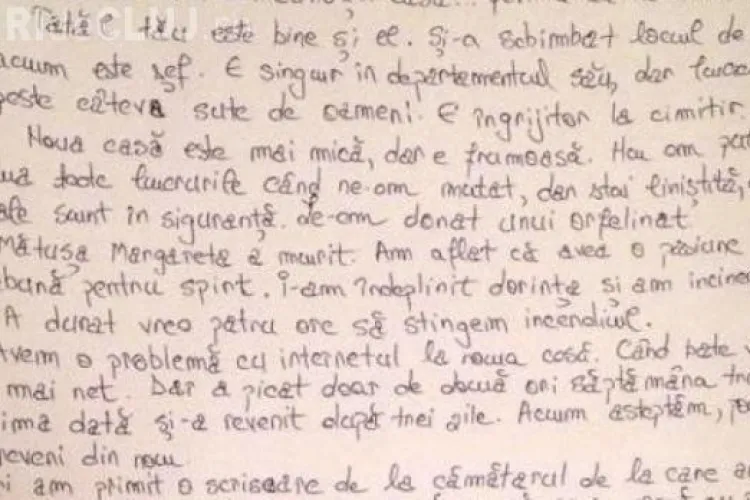 Tatăl tău este bine și el. Și-a schimbat locul de
acum este șef. E singur în departamentul său, dar lucre
peste câteva sute de oameni. E îngrijitor la cimitir.
Noua casă este mai mică, dar e frumoasă. Nu am
toate lucrurile când ne-am mutat, dar stai liniștită,
sunt în siguranță. Le-am donat unui orfelinat.
Mătușa Margareta a murit. Am aflat că avea o pasiune
bună pentru spirt. I-am îndeplinit dorința și am incine
A durat vreo patru ore să stingem incendiul.
Avem o problemă cu internetul la noua casă. Când bate
mai net. Dar a picat doar de două ori săptămâna tre
ima dată și-a revenit după trei zile. Acum așteptăm,
reveni din nou
am primit o scrisoare de la cămătarul de la care